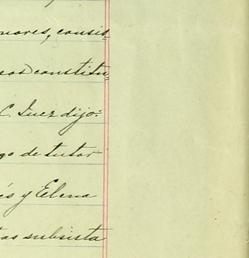 nores, consis-
sos constitu-
C. Juez dijo:
go de tutor
és y Elena
tas subsista